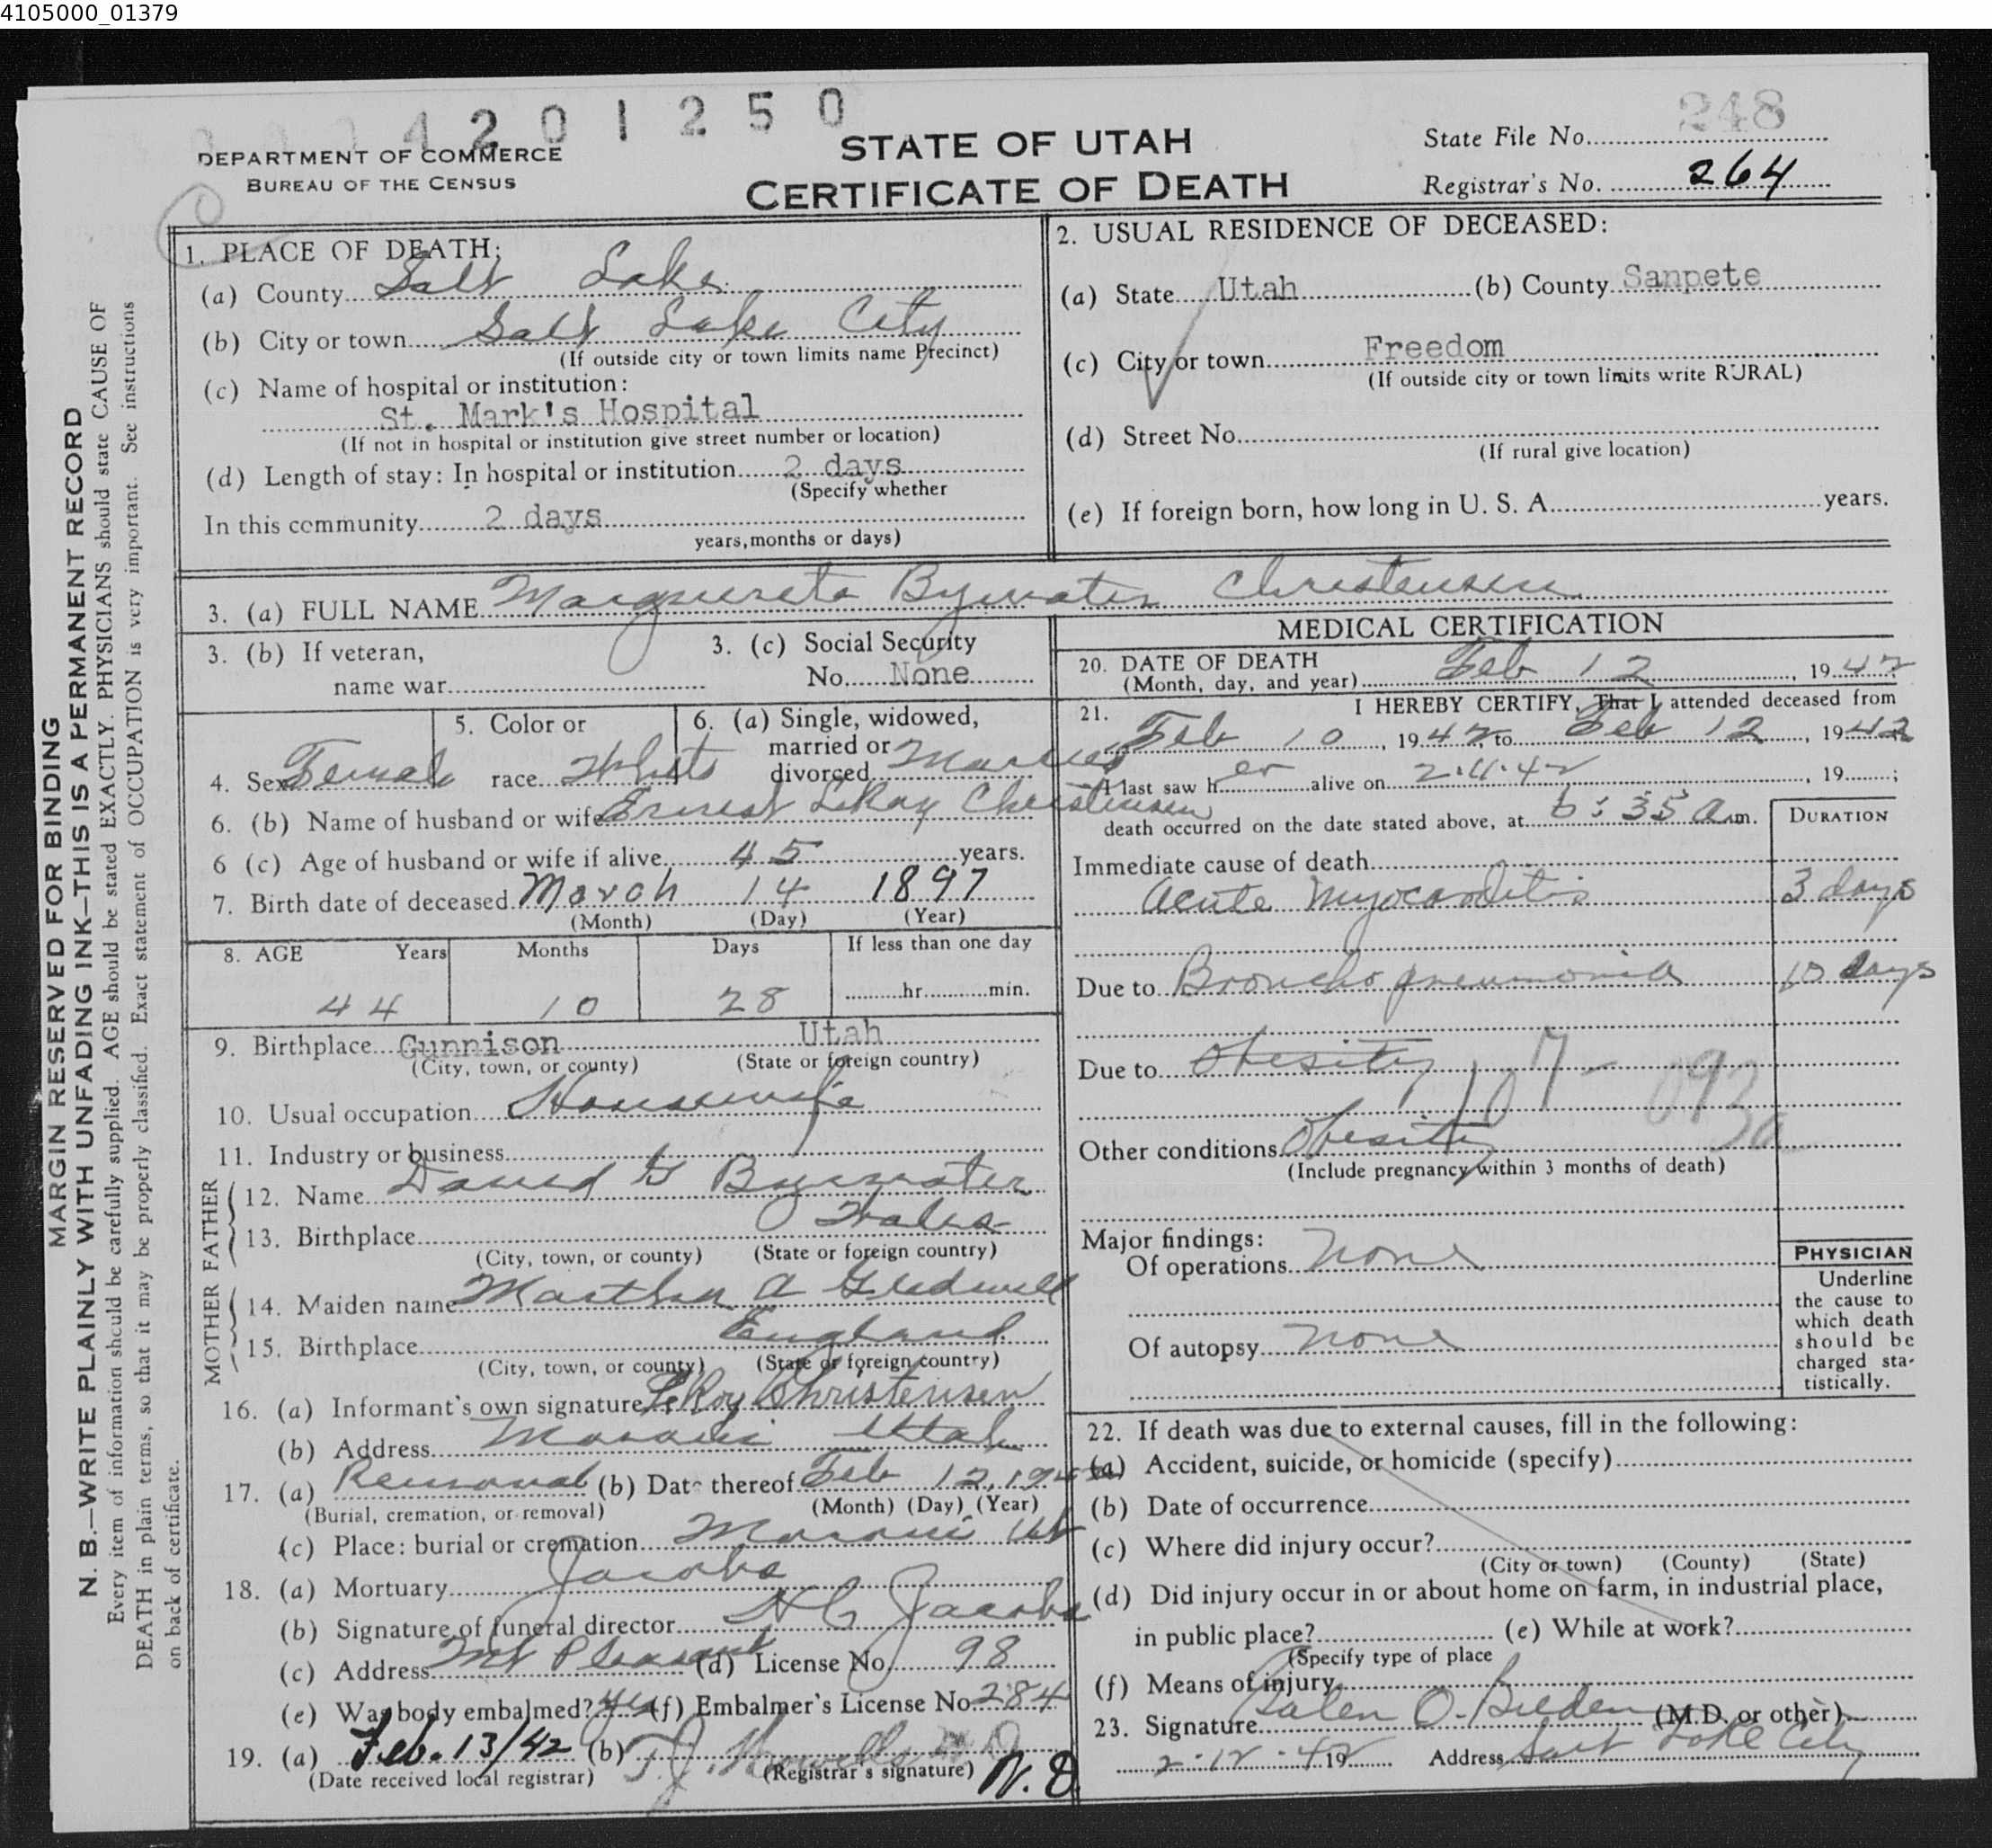 4105000_01379
4 2 0 1 2 5 0
248
DEPARTMENT OF COMMERCE
BUREAU OF THE CENSUS
STATE OF UTAH
CERTIFICATE OF DEATH
State File No.
Registrar's No. 264
MARGIN RESERVED FOR BINDING
N. B.—WRITE PLAINLY WITH UNFADING INK—THIS IS A PERMANENT RECORD
Every item of information should be carefully supplied. AGE should be stated EXACTLY. PHYSICIANS should state CAUSE OF
DEATH in plain terms, so that it may be properly classified. Exact statement of OCCUPATION is very important. See instructions
on back of certificate.
1. PLACE OF DEATH:
(a) County Salt Lake
(b) City or town Salt Lake City
(If outside city or town limits name Precinct)
(c) Name of hospital or institution:
St. Mark's Hospital
(If not in hospital or institution give street number or location)
(d) Length of stay: In hospital or institution 2 days
(Specify whether
In this community 2 days
years, months or days)
2. USUAL RESIDENCE OF DECEASED:
(a) State Utah (b) County Sanpete
(c) City or town Freedom
(If outside city or town limits write RURAL)
(d) Street No.
(If rural give location)
(e) If foreign born, how long in U. S. A. years.
3. (a) FULL NAME Marguereta Bywater Christensen
3. (b) If veteran,
name war
3. (c) Social Security
No. None
4. Sex Female
5. Color or
race White
6. (a) Single, widowed,
married or
divorced Married
6. (b) Name of husband or wife Ernest LeRoy Christensen
6 (c) Age of husband or wife if alive 45 years.
7. Birth date of deceased March 14 1897
(Month) (Day) (Year)
8. AGE Years Months Days If less than one day
44 10 28 hr. min.
9. Birthplace Gunnison Utah
(City, town, or county) (State or foreign country)
10. Usual occupation Housewife
11. Industry or business
FATHER
12. Name David G Bywater
13. Birthplace Wales
(City, town, or county) (State or foreign country)
MOTHER
14. Maiden name Martha A Gledwell
15. Birthplace England
(City, town, or county) (State or foreign country)
16. (a) Informant's own signature LeRoy Christensen
(b) Address Moroni Utah
17. (a) Removal (b) Date thereof Feb 12, 1942
(Burial, cremation, or removal) (Month) (Day) (Year)
(c) Place: burial or cremation Moroni Ut
18. (a) Mortuary Jacobs
(b) Signature of funeral director H C Jacobs
(c) Address Mt Pleasant (d) License No. 98
(e) Was body embalmed? yes (f) Embalmer's License No. 284
19. (a) Feb. 13/42 (b) T.J. Howells M D
(Date received local registrar) (Registrar's signature) N. D
MEDICAL CERTIFICATION
20. DATE OF DEATH
(Month, day, and year) Feb 12, 1942
21. I HEREBY CERTIFY, That I attended deceased from
Feb 10, 1942, to Feb 12, 1942
I last saw her alive on 2.11.42, 19 ;
death occurred on the date stated above, at 6:35 a.m.
DURATION
Immediate cause of death
Acute Myocarditis 3 days
Due to Broncho pneumonia 10 days
Due to Obesity 107 - 093a
Other conditions Obesity
(Include pregnancy within 3 months of death)
Major findings:
Of operations None
Of autopsy None
PHYSICIAN
Underline
the cause to
which death
should be
charged sta-
tistically.
22. If death was due to external causes, fill in the following:
(a) Accident, suicide, or homicide (specify)
(b) Date of occurrence
(c) Where did injury occur?
(City or town) (County) (State)
(d) Did injury occur in or about home on farm, in industrial place,
in public place? (e) While at work?
(Specify type of place
(f) Means of injury
23. Signature Galen O. Belden (M.D. or other)
2-12-42 19 Address Salt Lake City